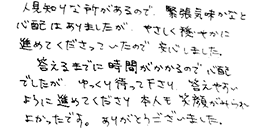 人見知りな所があるので、緊張気味かなと
心配はありましたが、やさしく穏やかに
進めてくださっていたので安心しました。
答えるまでに時間がかかるので心配
でしたが、ゆっくり待って下さり、答えやすい
ように進めてくださり本人も笑顔がみられ
よかったです。ありがとうございました。